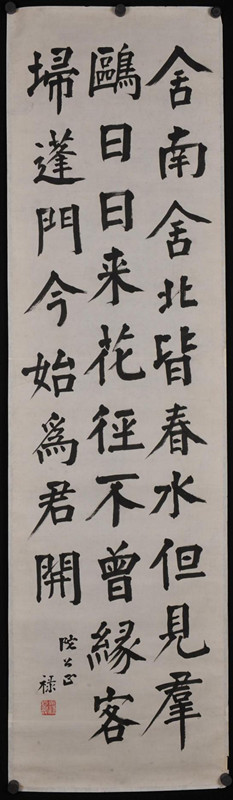 舍南舍北皆春水但見羣
鷗日日来花徑不曾緣客
掃蓬門今始為君開
公正
禄